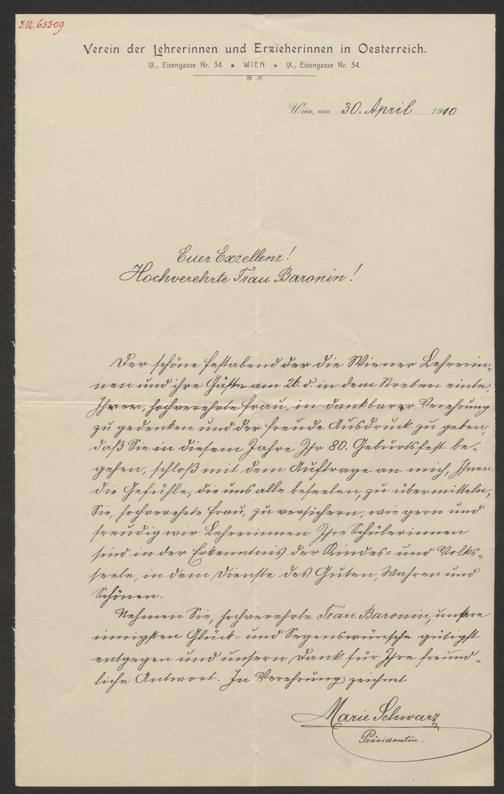 J.N. 63309
Verein der Lehrerinnen und Erzieherinnen in Oesterreich.
IX., Eisengasse Nr. 34 • WIEN • IX., Eisengasse Nr. 34.
Wien, am 30. April 1910
Euer Exzellenz!
Hochverehrte Frau Baronin!
Der schöne Festabend der die Wiener Lehrerin-
nen und ihre Gäste am 26. d. in dem Streben einte,
Ihrer, hochverehrte Frau, in dankbarer Verehrung
zu gedenken und der Freude Ausdruck zu geben,
daß Sie in diesem Jahre Ihr 80. Geburtsfest be-
gehen, schloß mit dem Auftrage an mich, Ihnen
die Gefühle, die uns alle beseelen, zu übermitteln,
Sie, hochverehrte Frau, zu versichern, wie gern und
freudig wir Lehrerinnen Ihre Schülerinnen
sind in der Erkenntnis der Kindes- und Volks-
seele, in dem Dienste des Guten, Wahren und
Schönen.
Nehmen Sie, hochverehrte Frau Baronin, unsere
innigsten Glück- und Segenswünsche gütigst
entgegen und unsern Dank für Ihre freund-
liche Antwort. In Verehrung zeichnet
Marie Schwarz
Präsidentin.